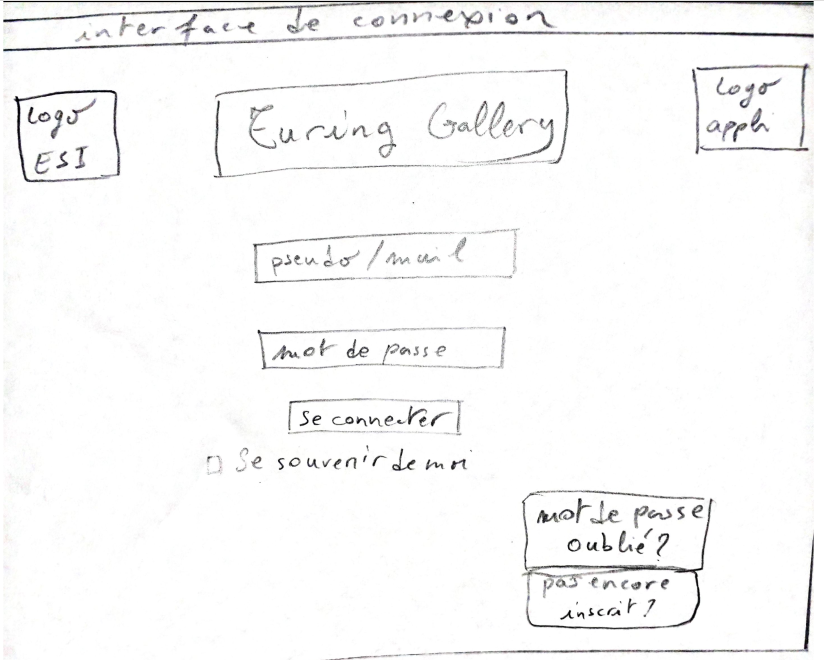 interface de connexion
logo
ESI
Turing Gallery
logo
appli
pseudo/mail
mot de passe
se connecter
Se souvenir de moi
mot de passe
oublié?
pas encore
inscrit?